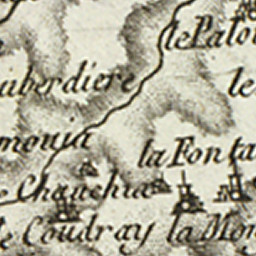 le Palou
auberdiere
le
mouia
la Fonta
e Chanchia
le Coudray
la Mon